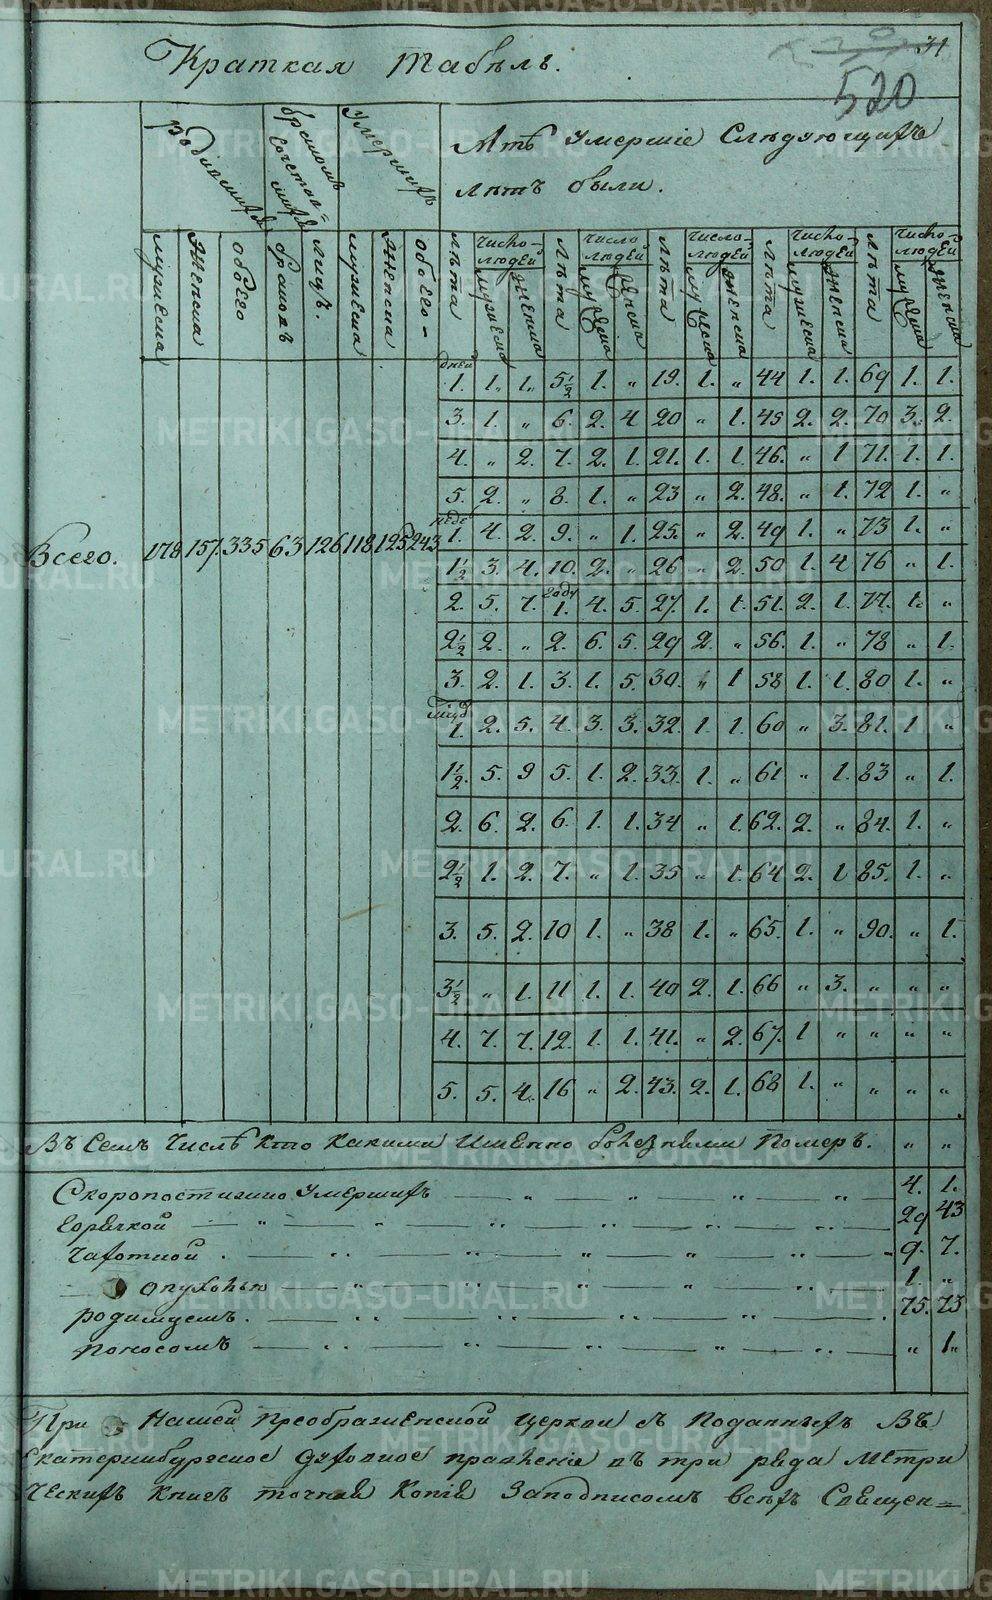 Краткая табѣль.
31
520
родившихся
бракомъ сочетав=шихся
умершихъ
А тѣ умершіе слѣдующихъ
лѣтъ были.
мужеска
женска
обоего
браковъ
лицъ.
мужеска
женска
обоего
лѣта
число людей
мужеска
женска
лѣта
число людей
мужеска
женска
лѣта
число людей
мужеска
женска
лѣта
число людей
мужеска
женска
лѣта
число людей
мужеска
женска
Всего. 178 157. 335 63 126 118 125 243
дней 1. 1. 1. 5½ 1. „ 19. 1. „ 44 1. 1. 69 1. 1.
3. 1. „ 6. 2. 4 20 „ 1. 45 2. 2. 70 3. 2.
4. „ 2. 7. 2. 1. 21. 1. 1. 46. „ 1 71. 1. 1.
5. 2. „ 8. 1. „ 23 „ 2. 48. „ 1. 72 1. „
недел 1. 4. 2. 9. „ 1. 25. „ 2. 49 1. „ 73 1. „
1½ 3. 4. 10. 2. „ 26 „ 2. 50 1. 4 76 „ 1.
2. 5. 7. году 1. 4. 5. 27. 1. 1. 51. 2. 1. 77. 1. „
2½ 2. „ 2. 6. 5. 29 2. „ 56. 1. „ 78 „ 1.
3. 2. 1. 3. 1. 5. 30. „ 1 58 1. 1. 80 1. „
1. 2. 5. 4. 3. 3. 32. 1 1. 60 „ 3. 81. 1 „
1½. 5. 9 5. 1. 2. 33. 1. „ 61 „ 1. 83 „ 1.
2. 6. 2. 6. 1. 1. 34 „ 1. 62. 2. „ 84. 1. „
2½ 1. 2. 7. „ 1. 35 „ 1. 64 2. 1 85. 1. „
3. 5. 2. 10 1. „ 38 1. „ 65. 1. „ 90. „ 1.
3½ „ 1. 11 1. 1. 40 2. 1. 66 „ 3. „ „ „
4. 7. 7. 12. 1. 1. 41. „ 2. 67. 1 „ „ „ „
5. 5. 4. 16 „ 2. 43. 2. 1. 68 1. „ „ „ „
Въ семъ числѣ кто какими именно болезнями померъ. „ „
Скоропостижно умершихъ 4. 1.
Горячкой 29 43
Чахотной 9. 7.
опухолью 1. „
родимцемъ. 75. 73
поносомъ „ 1„
При нашей Преображенской церкви съ поданныхъ въ
Екатеринбургское Духовное правленіе въ три ряда метри
ческихъ книгъ точная копія заподписомъ всѣхъ священ=
METRIKI.GASO-URAL.RU